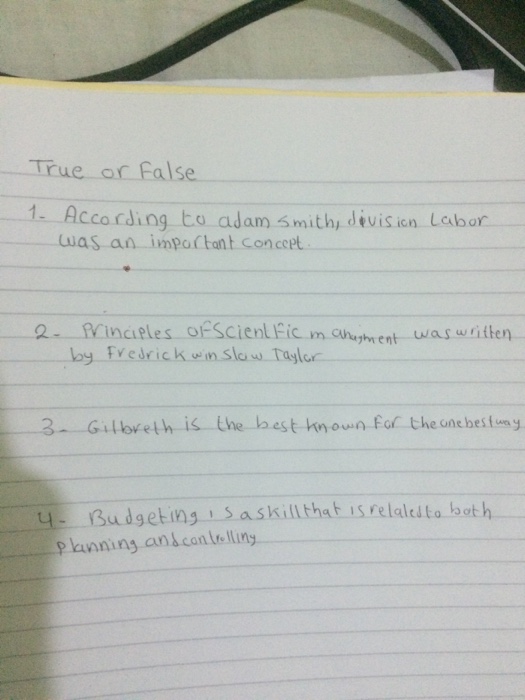 True or False
1- According to adam smith, division Labor
was an important concept.
2- Principles of Scientific managment was written
by Fredrick winslow Taylor
3- Gilbreth is the best known for the one best way
4- Budgeting is a skill that is related to both
planning and controlling